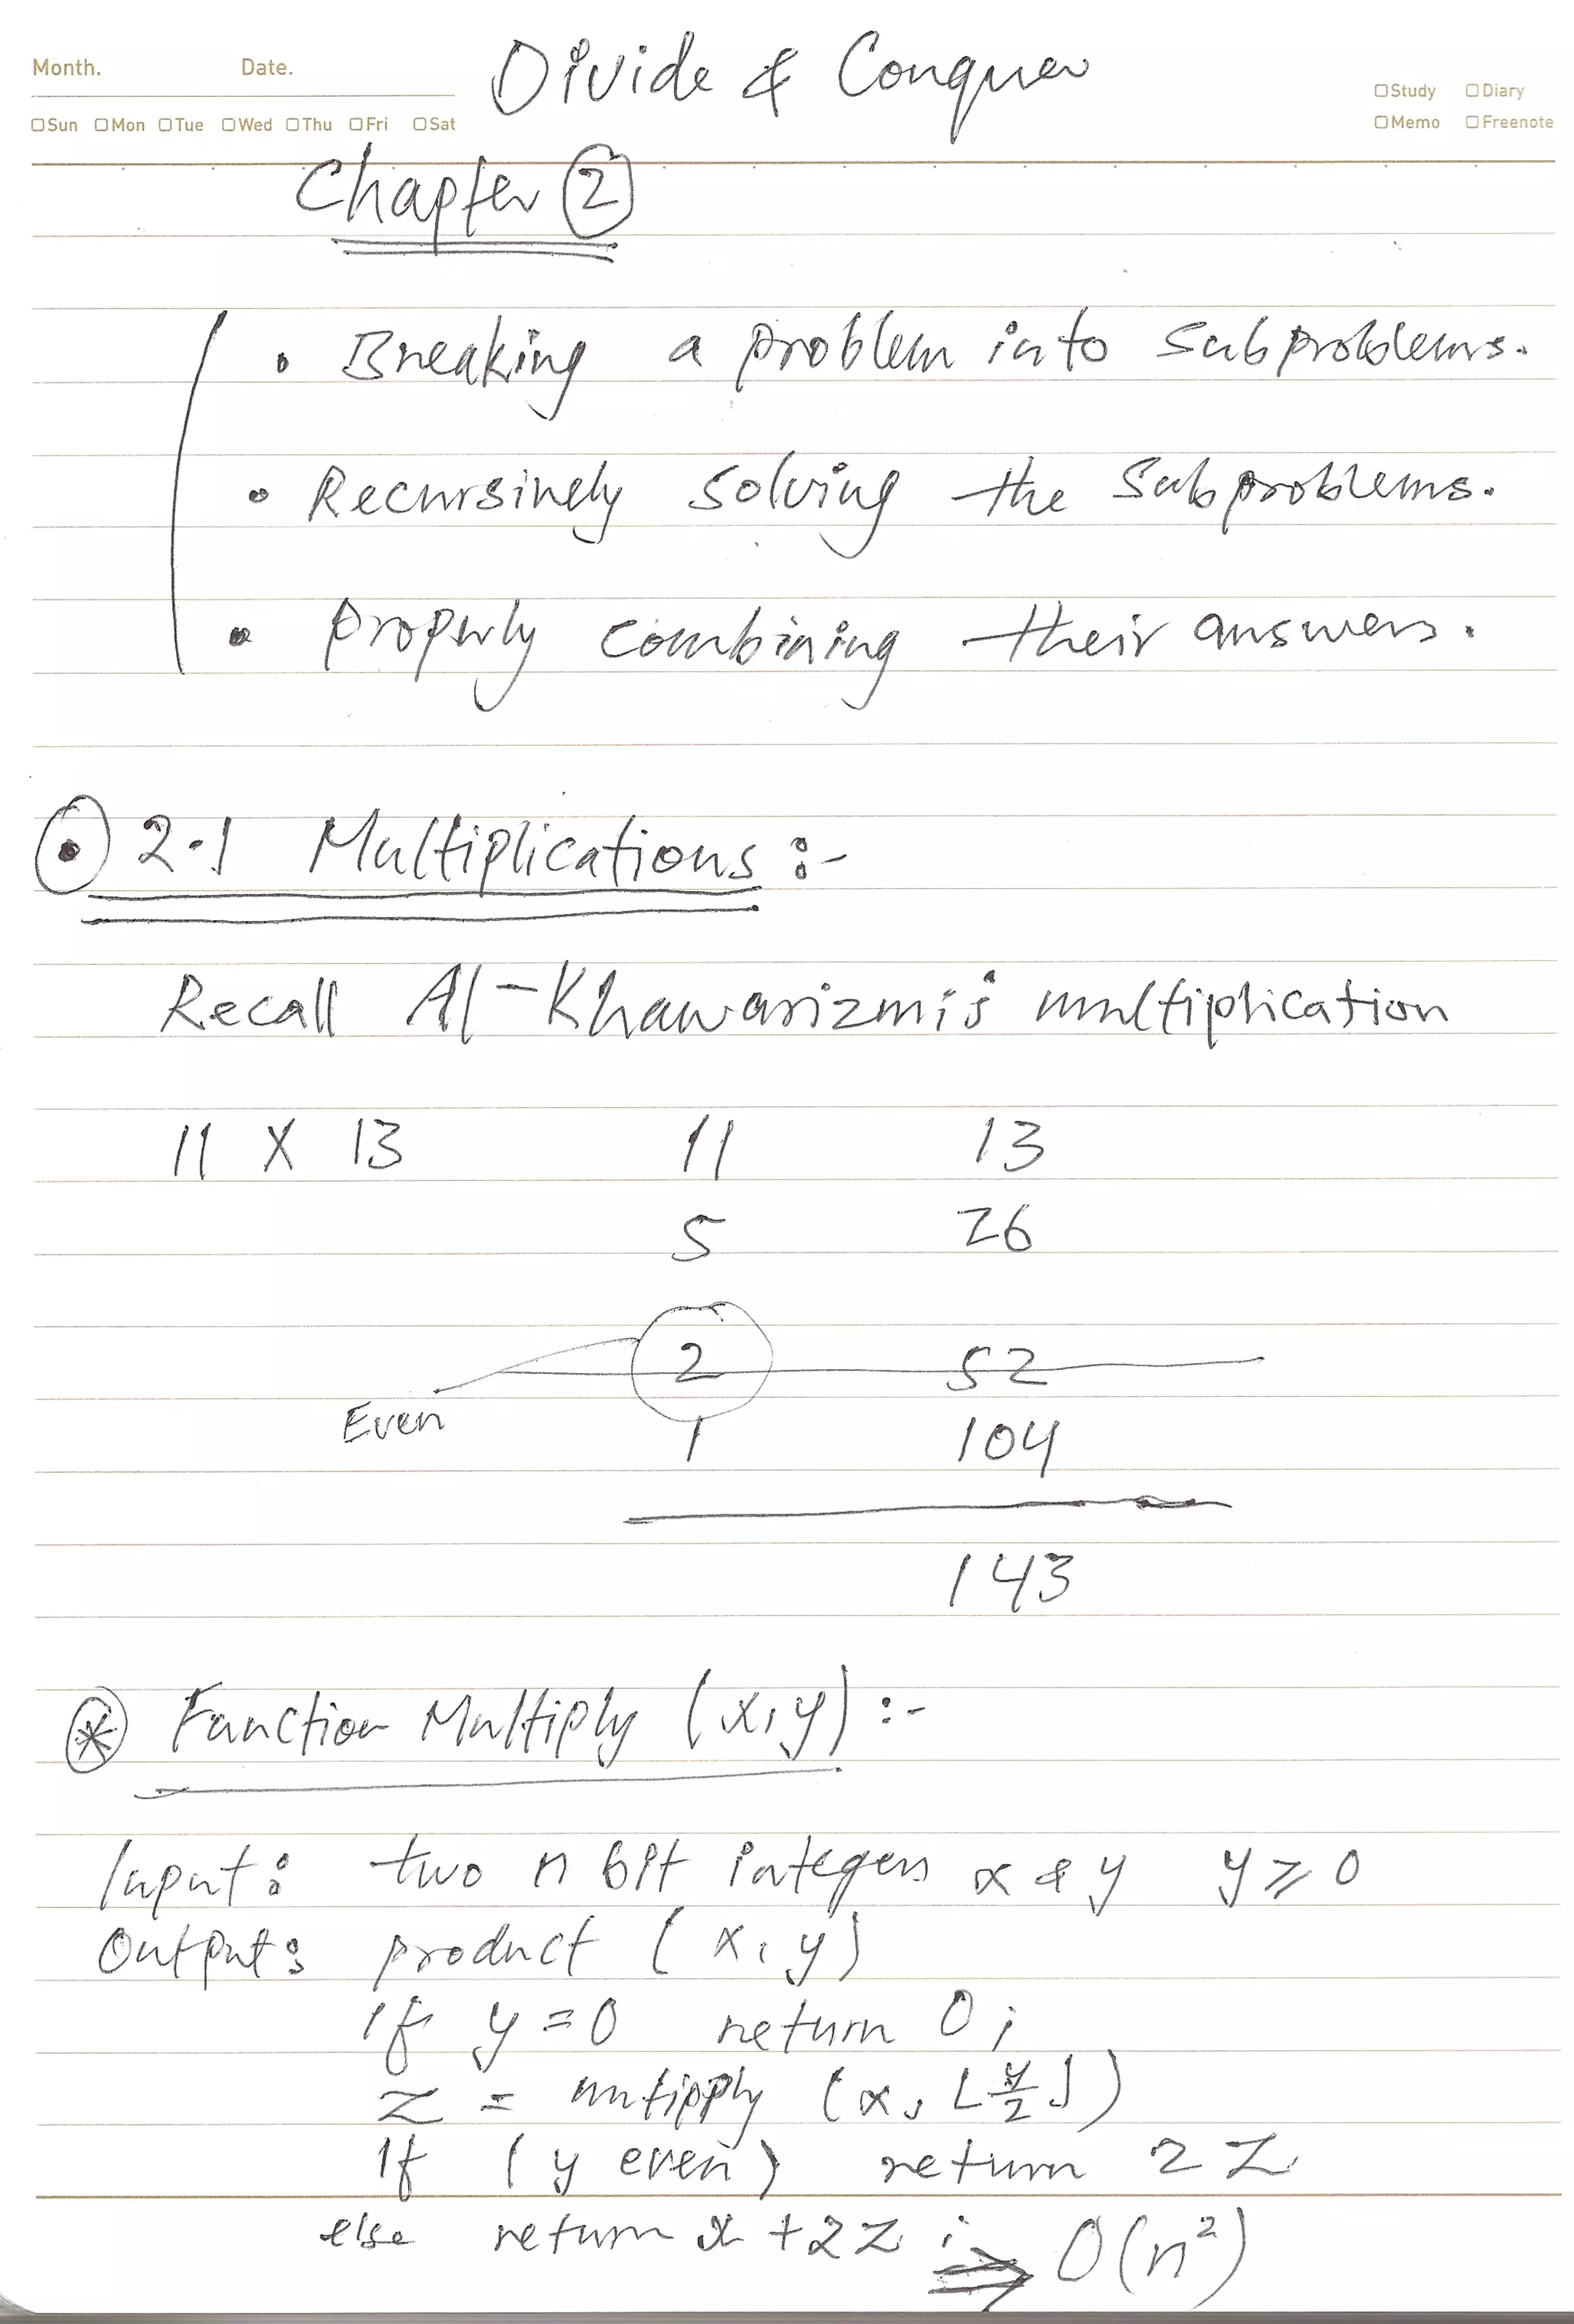 Month. Date. Divide & Conquer
☐Study ☐Diary
☐Sun ☐Mon ☐Tue ☐Wed ☐Thu ☐Fri ☐Sat ☐Memo ☐Freenote
Chapter ②
• Breaking a problem into Subproblems.
• Recursively solving the Subproblems.
• Properly combining their answers.
⊙ 2.1 Multiplications :-
Recall Al-Khawarizmi's multiplication
11 X 13 11 13
5 26
2 52
Even
1 104
143
⊛ Function Multiply (x,y) :-
Input: two n bit integers x & y y ≥ 0
Output: product (x, y)
If y = 0 return 0 ;
z = mutipply (x, ⌊y/2⌋)
If (y even) return 2 z
else return x + 2z ; ⇒ O(n²)